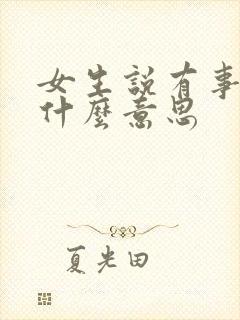 女生説有事
什麼意思
夏光田